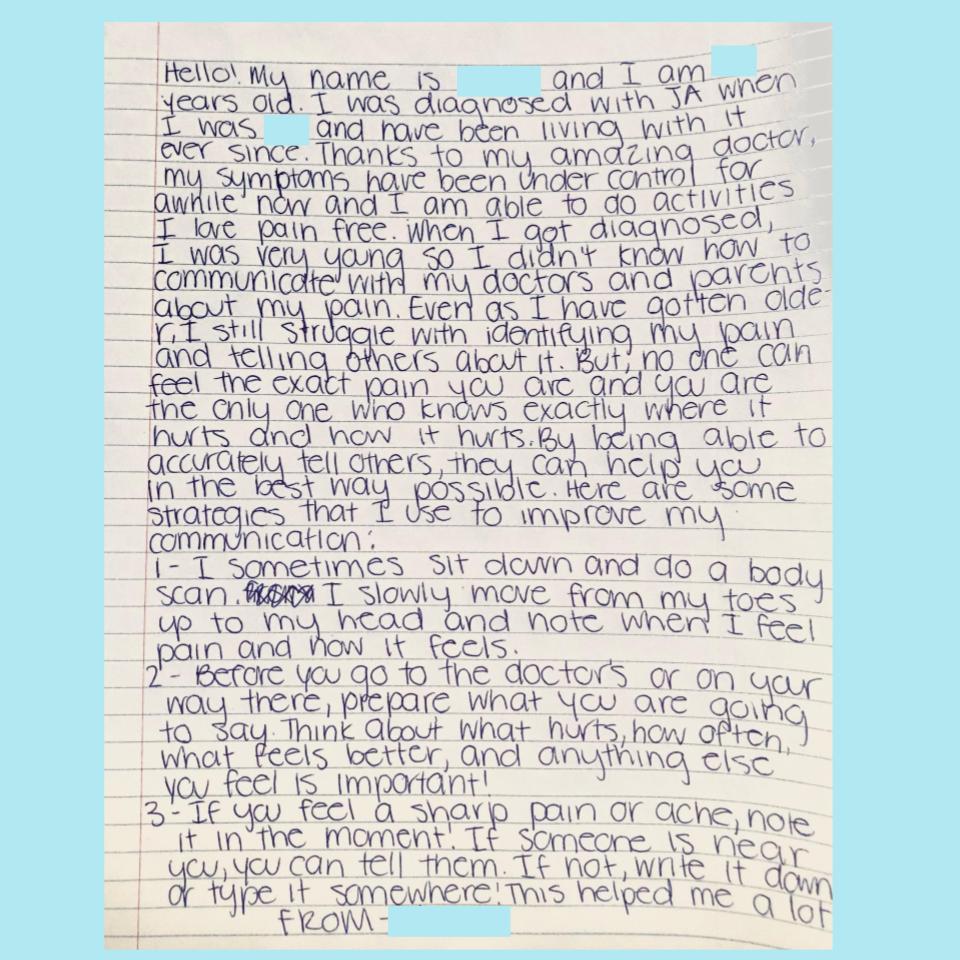 Hello! My name is and I am
years old. I was diagnosed with JA when
I was and have been living with it
ever since. Thanks to my amazing doctor,
my symptoms have been under control for
awhile now and I am able to do activities
I love pain free. When I got diagnosed,
I was very young so I didn't know how to
communicate with my doctors and parents
about my pain. Even as I have gotten olde-
r, I still struggle with identifying my pain
and telling others about it. But, no one can
feel the exact pain you are and you are
the only one who knows exactly where it
hurts and how it hurts. By being able to
accurately tell others, they can help you
in the best way possible. Here are some
strategies that I use to improve my
communication:
1- I sometimes sit down and do a body
scan. I slowly move from my toes
up to my head and note when I feel
pain and how it feels.
2- Before you go to the doctor's or on your
way there, prepare what you are going
to say. Think about what hurts, how often,
what feels better, and anything else
you feel is important!
3- If you feel a sharp pain or ache, note
it in the moment! If someone is near
you, you can tell them. If not, write it down
or type it somewhere! This helped me a lot
FROM-